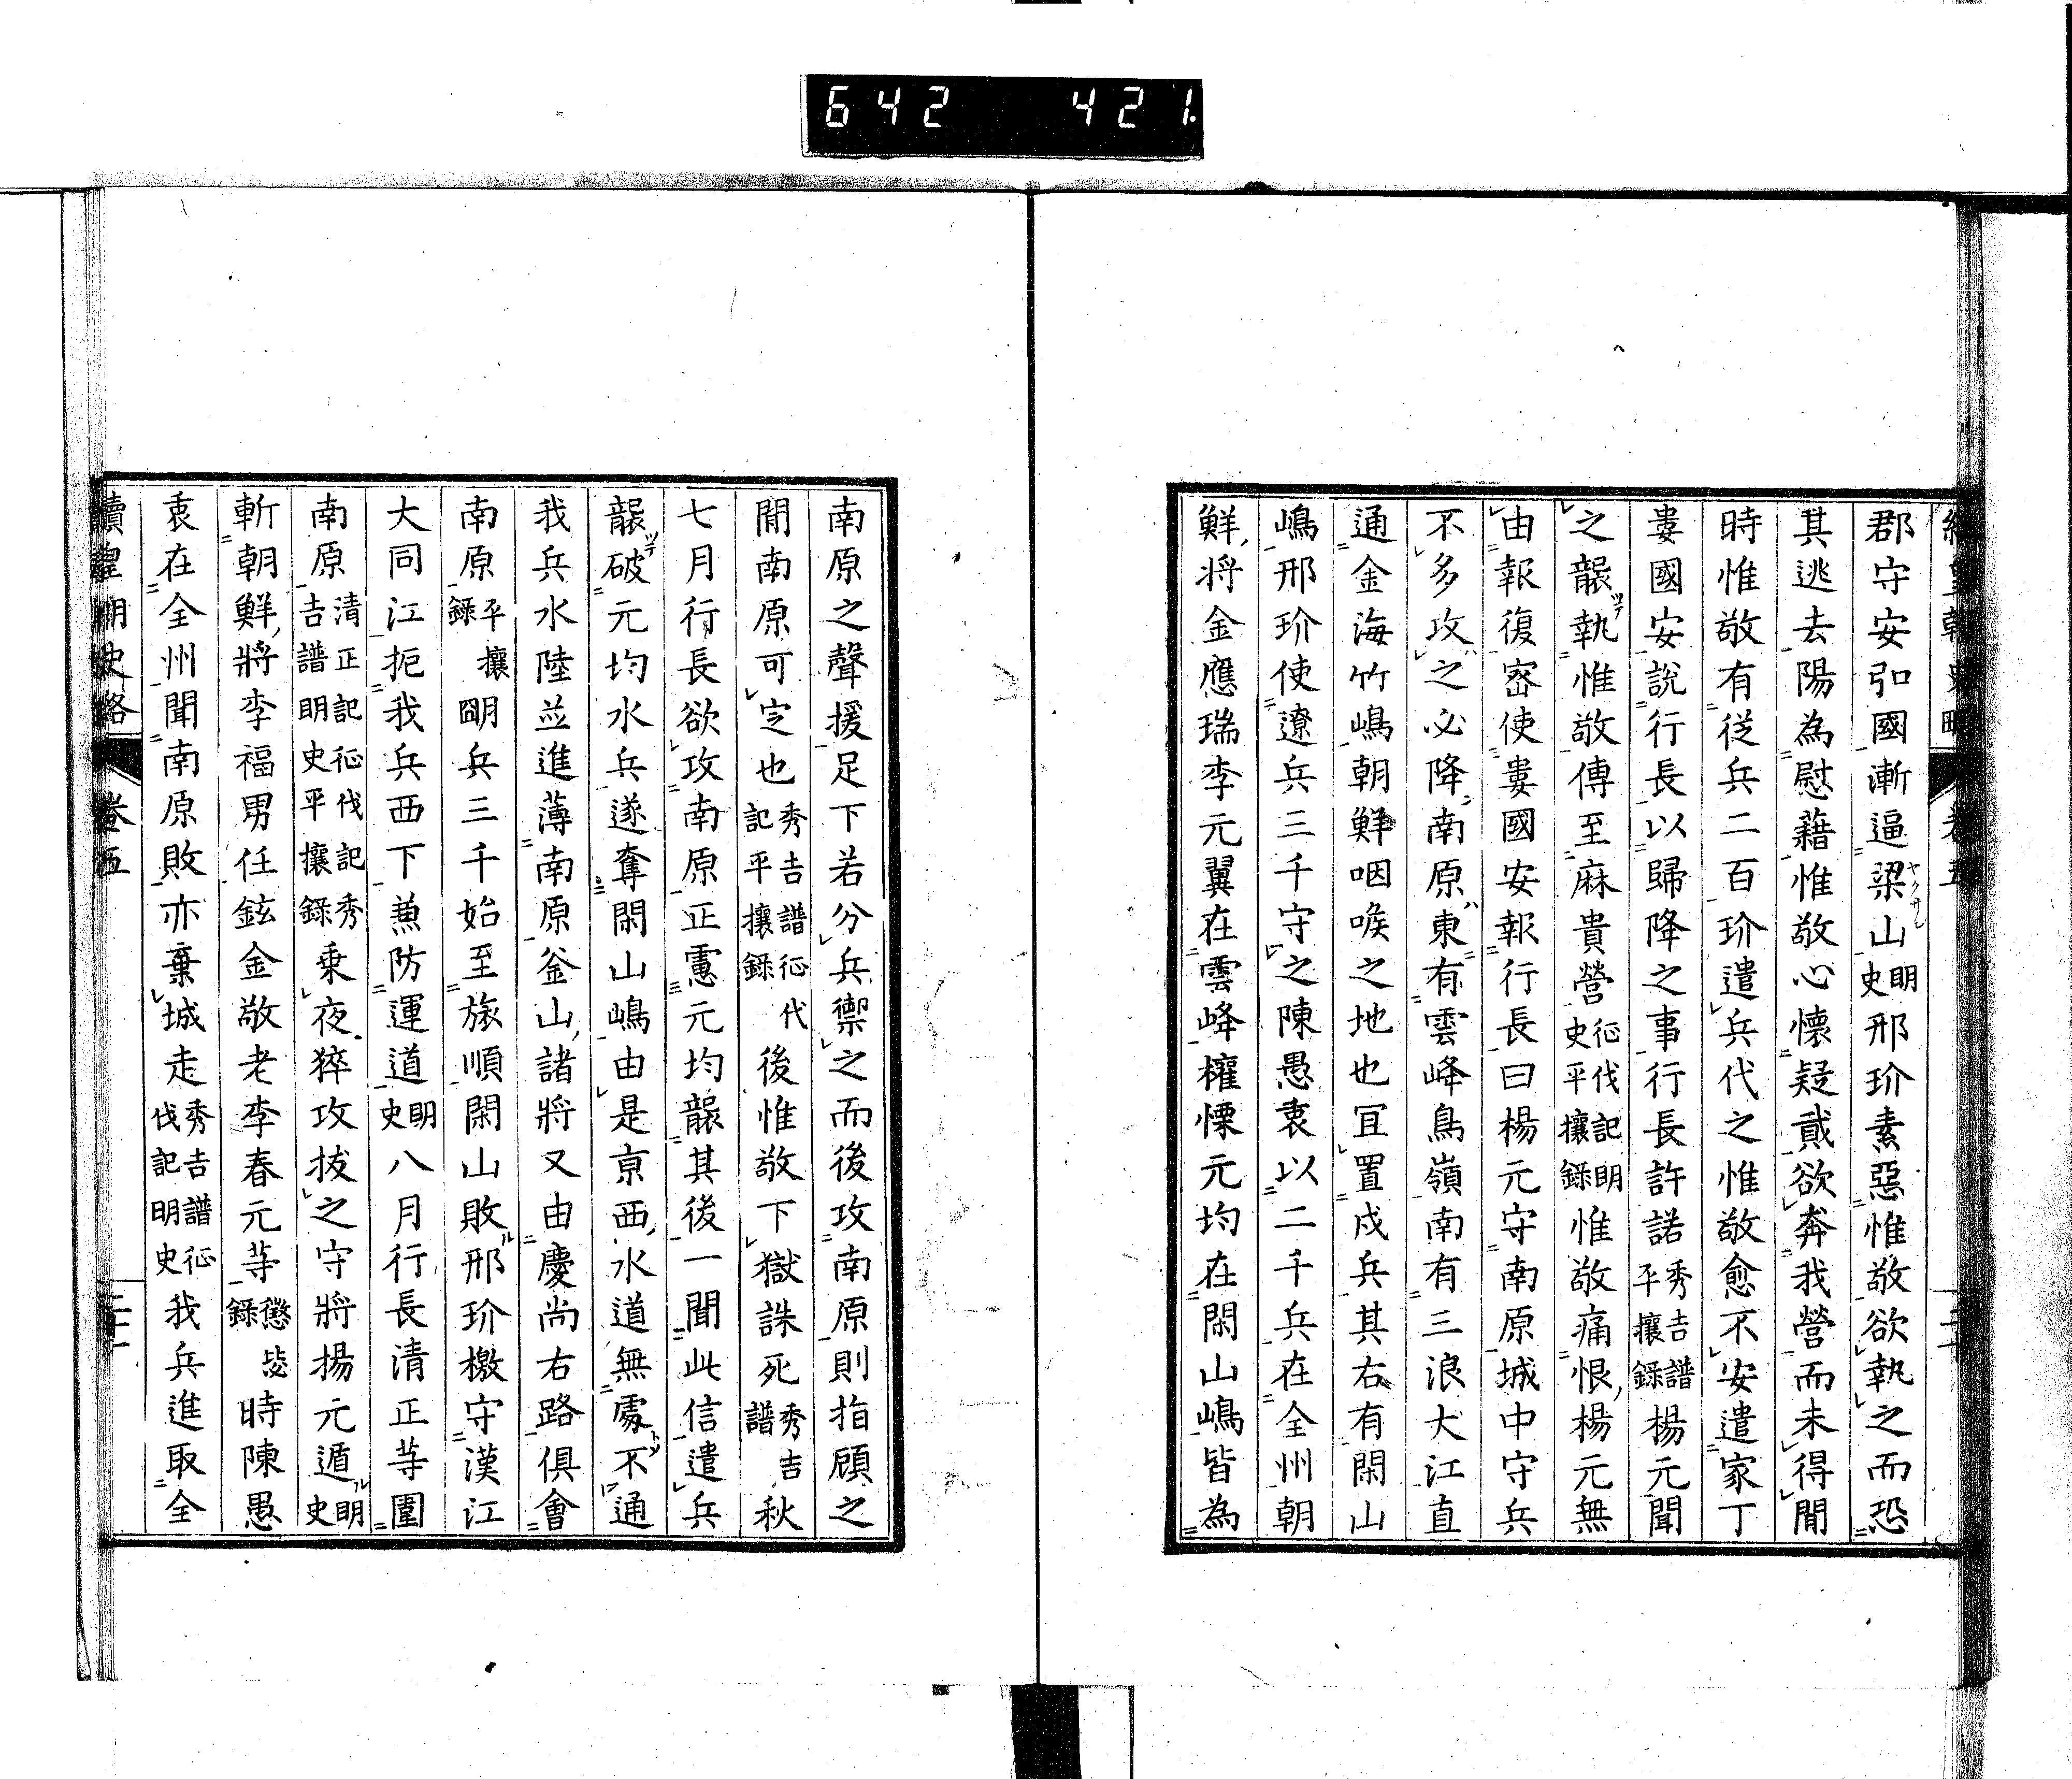 642 421.
郡守安弘國漸逼梁山明史邢玠素惡惟敬欲執之而恐
其逃去陽為慰藉惟敬心懷疑貳欲奔我營而未得間
時惟敬有從兵二百玠遣兵代之惟敬愈不安遣家丁
婁國安說行長以歸降之事行長許諾秀吉譜平攘錄楊元聞
之襲執惟敬傳至麻貴營征伐記明史平攘錄惟敬痛恨楊元無
由報復密使婁國安報行長曰楊元守南原城中守兵
不多攻之必降南原東有雲峰鳥嶺南有三浪大江直
通金海竹嶋朝鮮咽喉之地也宜置戍兵其右有閑山
嶋邢玠使遼兵三千守之陳愚衷以二千兵在全州朝
鮮將金應瑞李元翼在雲峰權慄元均在閑山嶋皆為
南原之聲援足下若分兵禦之而後攻南原則指顧之
間南原可定也秀吉譜征伐記平攘錄後惟敬下獄誅死秀吉譜秋
七月行長欲攻南原正慮元均襲其後一聞此信遣兵
襲破元均水兵遂奪閑山嶋由是京西水道無處不通
我兵水陸並進薄南原釜山諸將又由慶尚右路俱會
南原平攘錄明兵三千始至旅順閑山敗邢玠檄守漢江
大同江扼我兵西下兼防運道明史八月行長清正等圍
南原清正記征伐記秀吉譜明史平攘錄乘夜猝攻拔之守將揚元遁明史
斬朝鮮將李福男任鉉金敬老李春元等懲毖錄時陳愚
衷在全州聞南原敗亦棄城走秀吉譜征伐記明史我兵進取全
續皇朝史略 卷五